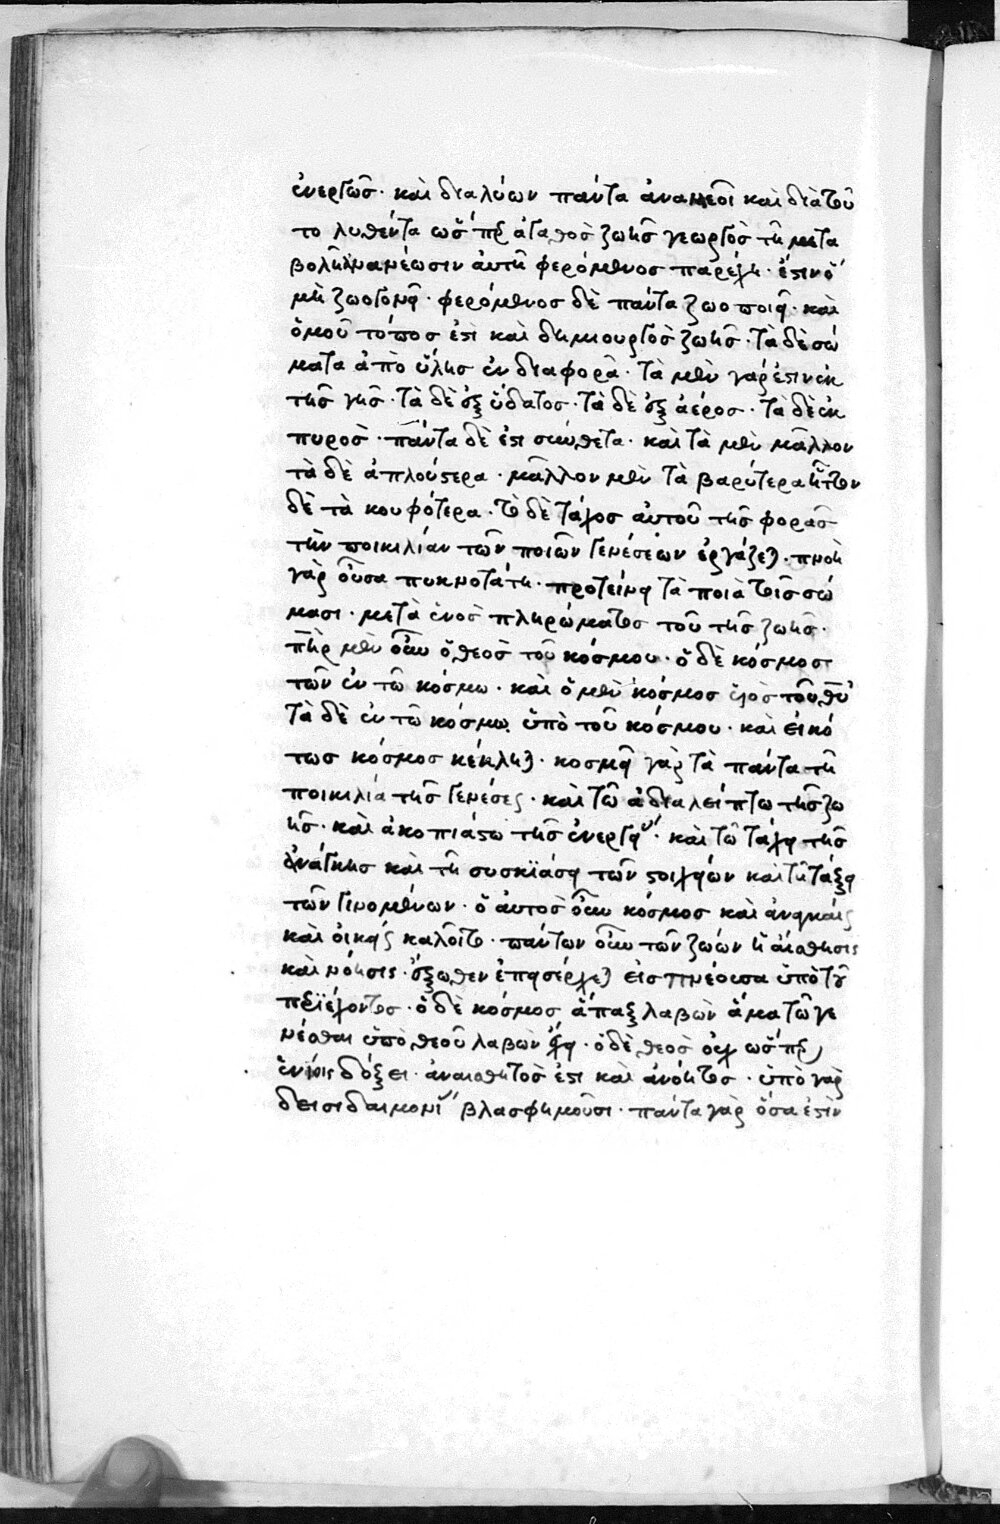 ἐνεργῶς· καὶ διαλύων πάντα ἀνανεοῖ καὶ διὰ τοῦ
το λυθέντα ὥσπερ ἀγαθὸς ζωῆς γεωργὸς τῇ μετα
βολῇ ἀνανέωσιν αὐτῇ φερόμενος παρέχει· ἔστιν ὃ
μὴ ζωογονεῖ· φερόμενος δὲ πάντα ζωοποιεῖ· καὶ
ὁμοῦ τόπος ἐστὶ καὶ δημιουργὸς ζωῆς· τὰ δὲ σώ
ματα ἀπὸ ὕλης ἐν διαφορᾶ· τὰ μὲν γάρ ἐστιν ἐκ
τῆς γῆς· τὰ δὲ ἐξ ὕδατος· τὰ δὲ ἐξ ἀέρος· τὰ δὲ ἐκ
πυρός· πάντα δὲ ἐστι σύνθετα· καὶ τὰ μὲν μᾶλλον
τὰ δὲ ἁπλούστερα· μᾶλλον μὲν τὰ βαρύτερα ἧττον
δὲ τὰ κουφότερα· τὸ δὲ τάχος αὐτοῦ τῆς φορᾶς
τὴν ποικιλίαν τῶν ποιῶν γενέσεων ἐργάζεται· πνοὴ
γὰρ οὖσα πυκνοτάτη· προτείνει τὰ ποιὰ τοῖς σώ
μασι· μετὰ ἑνὸς πληρώματος τοῦ τῆς ζωῆς·
πῆρ μὲν οὖν ὁ θεὸς τοῦ κόσμου· ὁ δὲ κόσμος
τῶν ἐν τῶ κόσμω· καὶ ὁ μὲν κόσμος ὑιὸς τοῦ θῦ
τὰ δὲ ἐν τῶ κόσμω ὑπὸ τοῦ κόσμου· καὶ εἰκό
τως κόσμος κέκληται· κοσμεῖ γὰρ τὰ πάντα τῇ
ποικιλία τῆς γενέσεως· καὶ τῶ ἀδιαλείπτω τῆς ζω
ῆς· καὶ ἀκοπιάστω τῆς ἐνεργείας· καὶ τῶ τάχει τῆς
ἀνάγκης καὶ τῇ συσκϊάσει τῶν στοιχείων καὶ τῇ τάξει
τῶν γινομένων· ὁ αὐτὸς οὖν κόσμος καὶ ἀναγκαίως
καὶ οἰκείως καλοῖτο· πάντων οὖν τῶν ζώων ἡ αἴσθησις
καὶ νόησις· ἔξωθεν ἐπεισέρχεται εἰσπνέουσα ὑπὸ τοῦ
περϊέχοντος· ὁ δὲ κόσμος ἅπαξ λαβὼν ἅμα τῶ γε
νέσθαι ὑπὸ θεοῦ λαβὼν ἔχει· ὁ δὲ θεὸς οὐχ ὥσπερ
ἐνίοις δόξει· ἀναισθητός ἐστι καὶ ἀνόητος· ὑπὸ γὰρ
δεισιδαιμονίας βλασφημοῦσι· πάντα γὰρ ὅσα ἐστὶν